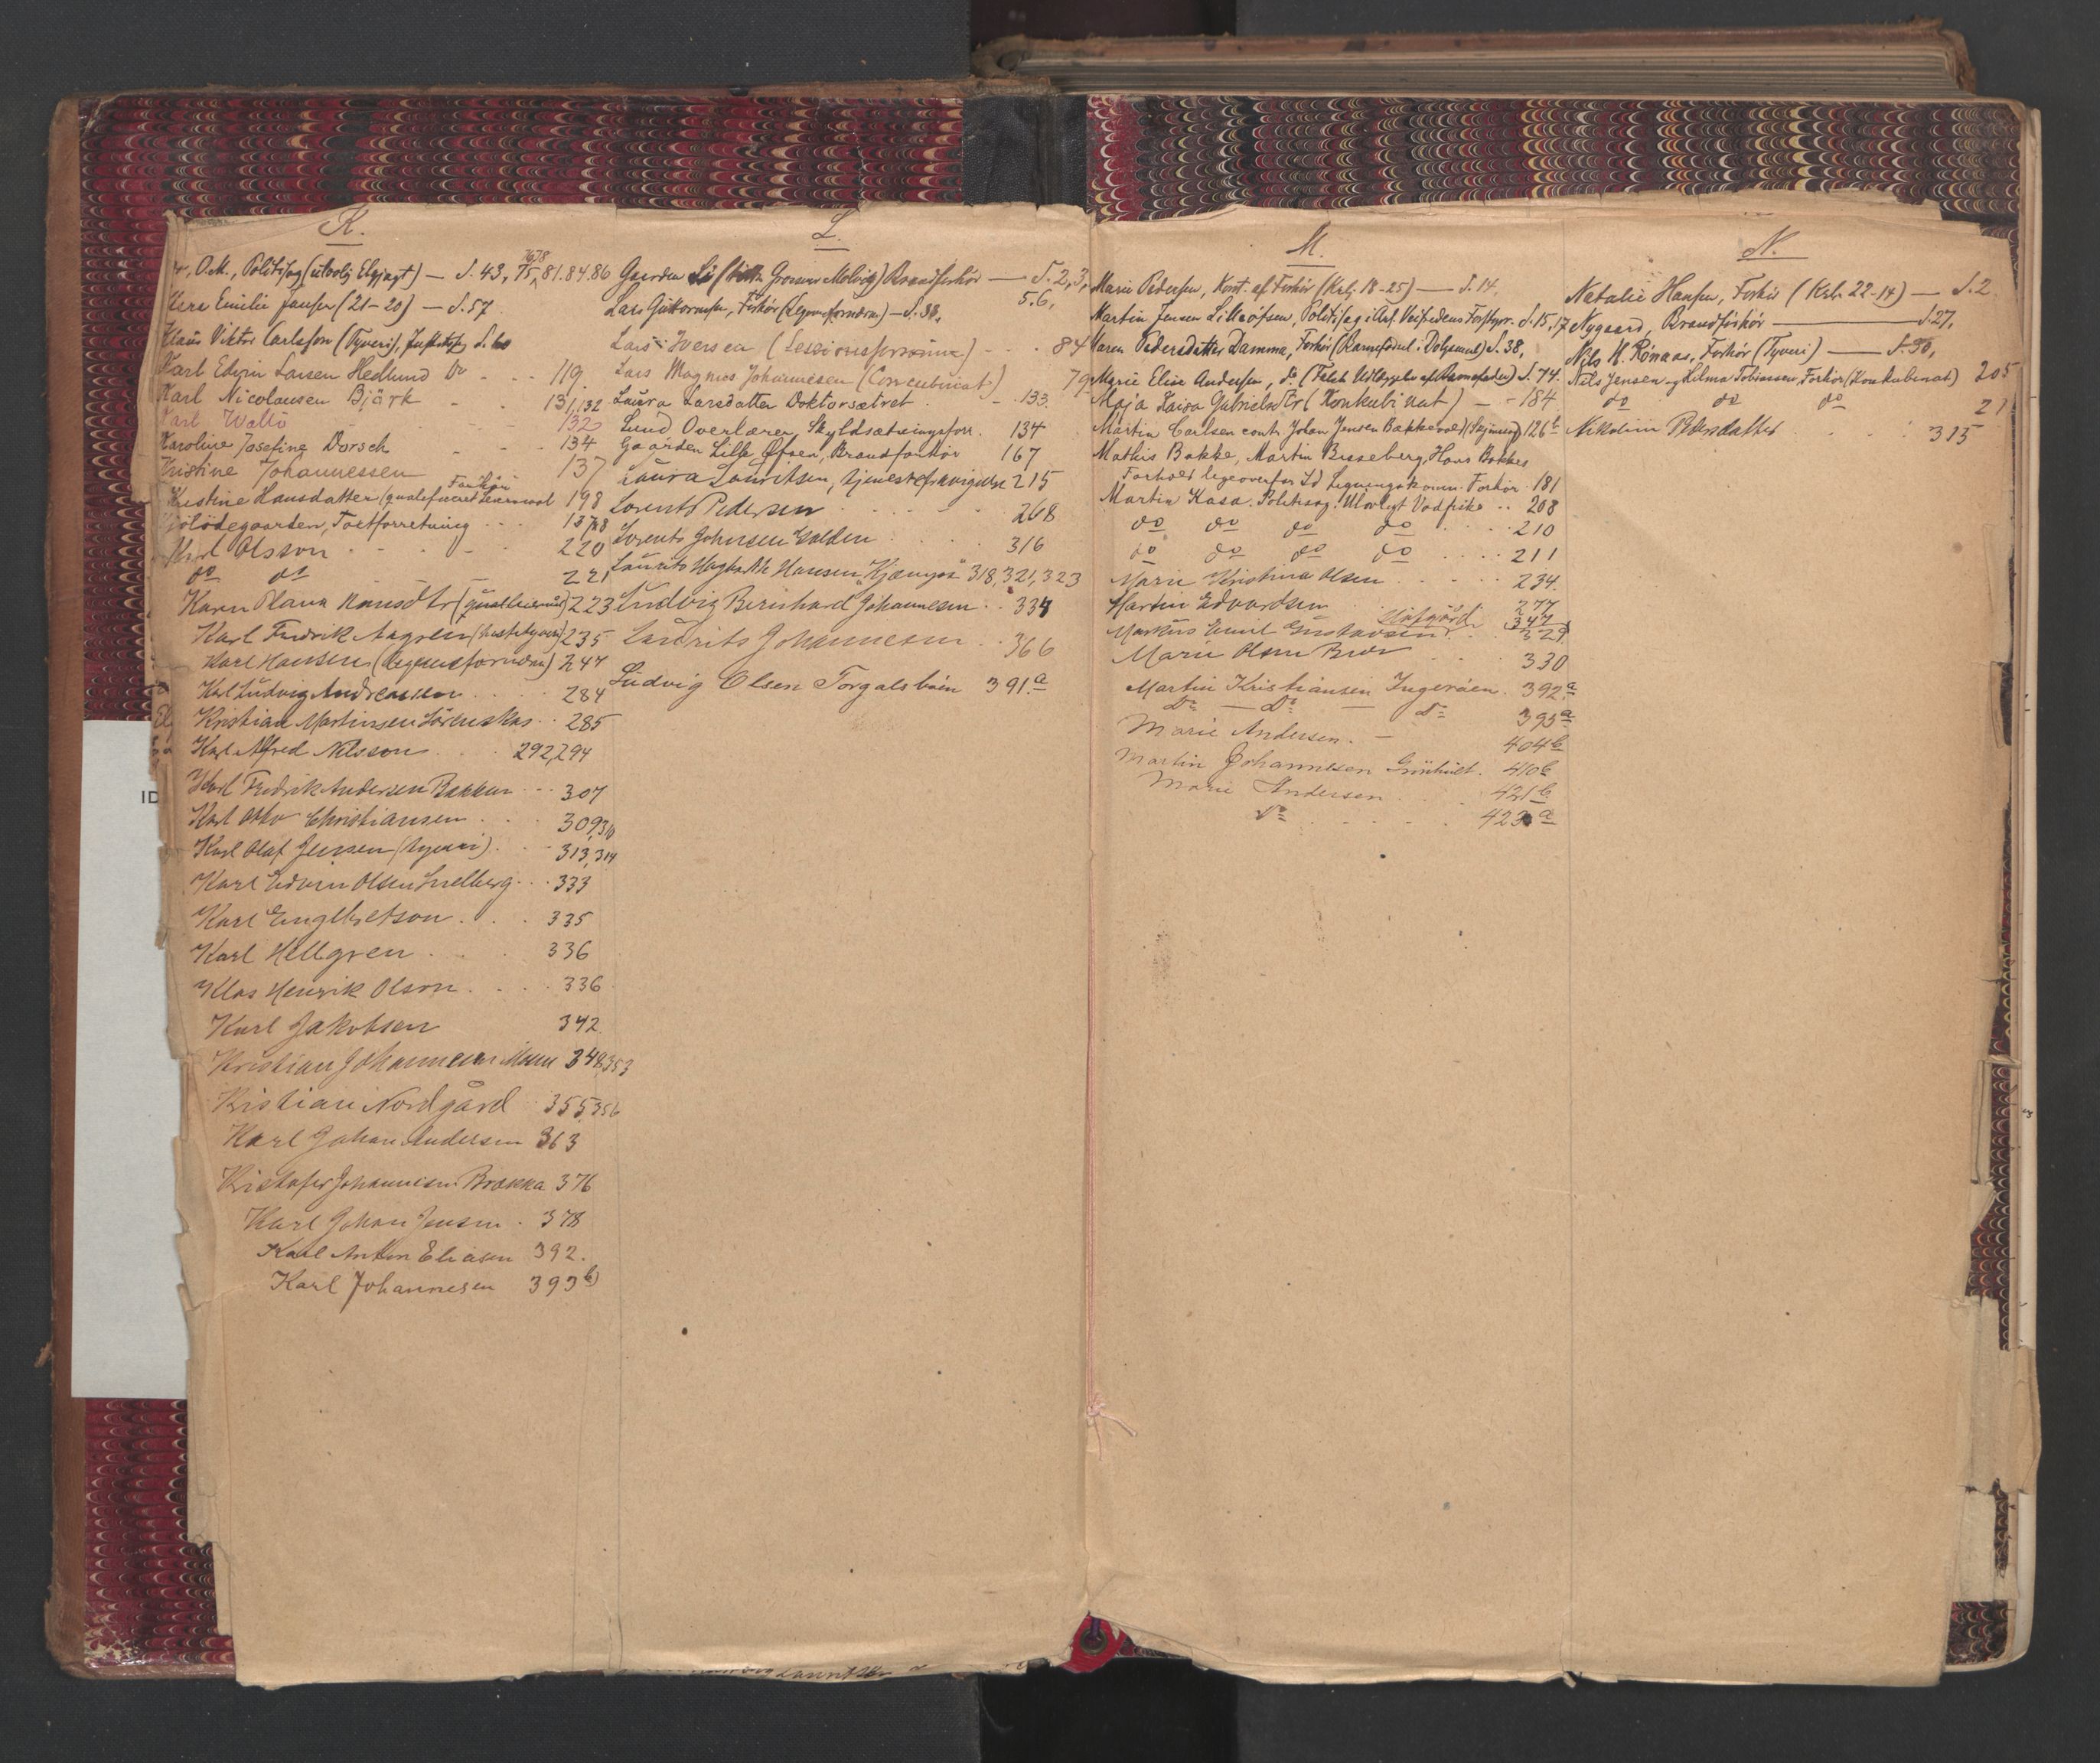 K.
O.M., Politisag (ulovlig Elgjagt) — S. 43, 75, 81. 84. 86
7678
Emilie Jansen (21-20) — S. 57
Klaus Viktor Carlsson (Tyveri), S. 60
Karl Edvin Larsen Hedlund Do - - - 119
Karl Nicolausen Björk - - 131, 132
Karl Wallö 132
Karoline Josefine Dorsch - - - 134
Kristine Johannessen 137
Forhör
Kristine Hansdatter (qualificeret Leiermaal 198
Kjölödegaarden, Toftforretning - - - 1378
Karl Olsson - - - - 220
do do 221
Karen Olava Hansdtr (qual leierm) 223
Karl Fredrik Aagren (hestetyveri) 235
Karl Hansen (legemsfornærm) 247
Karl Ludvig Andreassen 284
Kristian Martinsen Sörenskas 285
Karl Alfred Nilsson 292, 294
Karl Fredrik Andersen Bakken 307
Karl Otto Christiansen 309, 310
Karl Olaf Jensen (tyveri) 313, 314
Karl Edvin Olsen 333
Karl Engebretson 335
Karl Hellgren 336
Klas Henrik Olson 336
Karl Jakobsen 342
Kristian Johannesen Moen 348, 353
Kristian Nordgård 355, 356
Karl Johan Andersen 363
Kristofer Johannesen Brekka 376
Karl Johan Jensen 378
Karl Anton Eliasen 392.
Karl Johannesen 393 b)
L.
Gaarden Lii Brandforhör — S. 2, 3,
5. 6.
Lars Guttormsen, Forhör (Legemsfornærm) — S. 38,
Lars Iversen (Lesionsfornærm) - - 84
Lars Magnus Johannesen (Concubinat) 79
Laura Larsdatter Doktorsætret - 133
Lund Overlærer, Skyldsætningsforr. 134
Gaarden Lille Ofsen, Brandforhör 167
Laura Lauritsen, tjenestefravigelse 215
Lorents Pedersen 268
Lorents Johnsen Holden 316
Laurits Hagbarth Hansen "Kjempa" 318, 321, 323
Ludvig Bernhard Johannesen 334
Laurits Johannesen 366
Ludvig Olsen Torgalsböen 391.a
M.
Marie Pedersen, Kont. af Forhör (Krlj 18-25) — S. 14.
Martin Jensen Lilleofsen, Politisag i Anl. Veifredens Forstyrr. S. 15, 17
Maren Pedersdatter Damma, Forhör (Barnefödsel i Dölgsmaal) S. 38,
Marie Elise Andersen, do (Falsk Udlæggelse af Barnefader) S. 74.
Maja Kaisa Gabrielsdtr (Konkubinat) - - 184
Martin Carlsen contr Johan Jensen Bakkevold (Injurier) 126 b
Mathis Bakke, Martin Bisseberg, Hans Bakkes
Forhold ligeoverfor Id Ligningskomm. Forhör 181
Martin Kasa. Politisag: Ulovligt Vadfiske 208
do do do do 210
do do do do 211
Marie Kristina Olsen 234.
Martin Edvardsen 277
Slåtgård 347
Markus Emil Gustavsen 329
Marie Olsen Broer 330
Martin Kristiansen Ingeröen 392 a
Do — Do — Do 395 a
Marie Andersen 404 b
Martin Johannesen Grönholt 410 b
Marie Andersen 421 b
Do 423 a
N.
Natalie Hansen, Forhör (Krlr. 22-14) — S. 2
Nygaard, Brandforhör — S. 27,
Nils H. Rönaas, Forhör (Tyveri) — S. 30,
Nils Jensen og Hilma Tobiassen, Forhör (Konkubinat) 205
do do do 21
Nikoline Bensdatter 315
ID